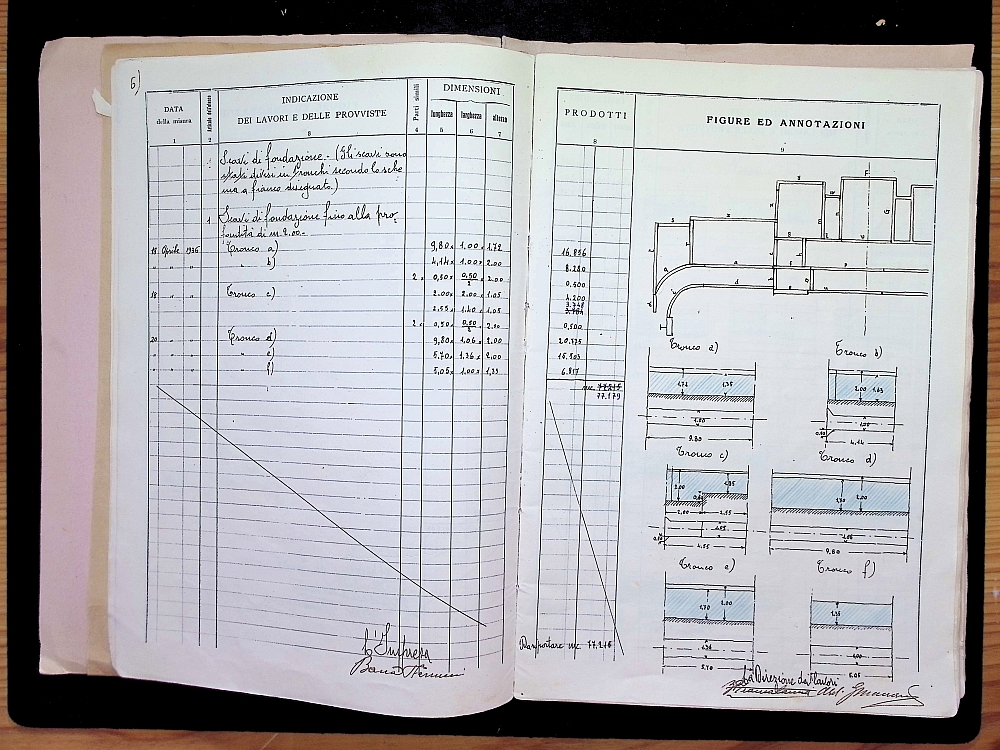 6)
DATA
della misura
INDICAZIONE
DEI LAVORI E DELLE PROVVISTE
Parti simili
DIMENSIONI
lunghezza larghezza altezza
1 2 3 4 5 6 7
Scavi di fondazione. - (Gli scavi sono
divisi in Tronchi secondo lo sche
ma a fianco disegnato.)
1 Scavi di fondazione fino alla pro-
fondità di m 2.00.-
18 Aprile 1936 Tronco a) 9,80 x 1.00 x 1,72
" " " " b) 4,14 x 1.00 x 2.00
2 x 0,50 x 0,50/2 x 2.00
18 " " Tronco c) 2.00 x 2.00 x 1.05
2.55 x 1.40 x 1.05
2 x 0,50 x 0,50/2 x 2.00
20 " " Tronco d) 9,80 x 1,06 x 2.00
" " " " e) 5.70 x 1,36 x 2,00
" " " " f) 5,05 x 1.00 x 1,35
L'Impresa
PRODOTTI
8
16.856
8.280
0,500
4.200
3.748
0,500
20.775
15.503
6.817
mc. 77.215
77.179
Riportare mc 77.216
FIGURE ED ANNOTAZIONI
9
F
Tronco a)
1,72 1,35
1.00
9.80
Tronco b)
2,00 1,63
1,00
0,50
4,14
Tronco c)
2,00 1,05
2,00 2,55
1,05
4,55
Tronco d)
1,70 2,00
1,06
9,80
Tronco e)
1,70 2,00
1,36
5,70
Tronco f)
1,35
1,00
5,05
La Direzione dei lavori